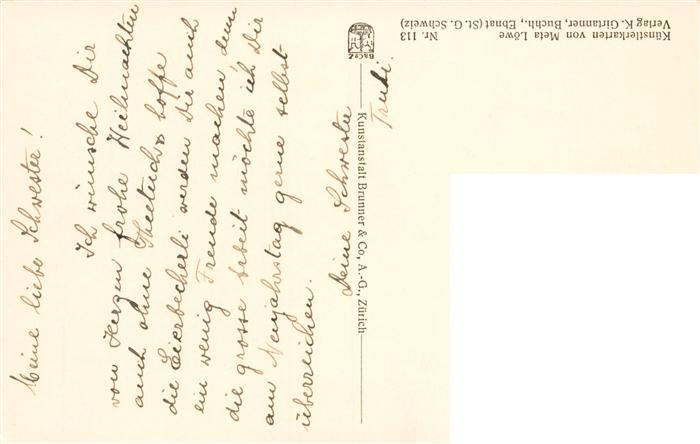 Meine liebe Schwester!
Ich wünsche Dir
vom Herzen frohe Weihnachten
auch ohne Theetuch & hoffe
die Eierbecherli werden Dir auch
ein wenig Freude machen, denn
die grosse Arbeit möchte ich Dir
am Neujahrstag gerne selbst
überreichen.
Deine Schwester
Trudi.
Kunstanstalt Brunner & Co., A.-G., Zürich
B&CoZ
Künstlerkarten von Meta Löwe Nr. 113
Verlag K. Girtanner, Buchh., Ebnat (St. G. Schweiz)